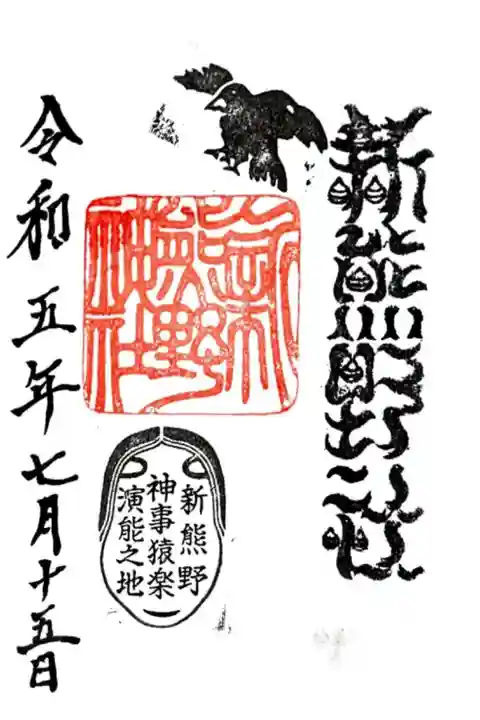 新熊野神社
新熊野神社
新熊野
神事猿楽
演能之地
令和五年七月十五日